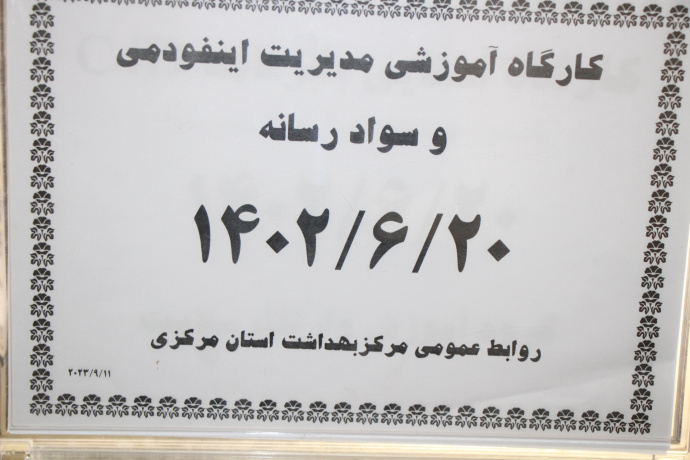 کارگاه آموزشی مدیریت اینفودمی
و سواد رسانه
۱۴۰۲/۶/۲۰
روابط عمومی مرکزبهداشت استان مرکزی
۲۰۲۳/۹/۱۱